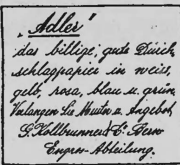 „Adler“
das billige, gute Durch-
schlagpapier in weiss,
gelb, rosa, blau u. grün.
Verlangen Sie Muster u. Angebot.
G. Kollbrunner & Co. Bern
Engros-Abteilung.